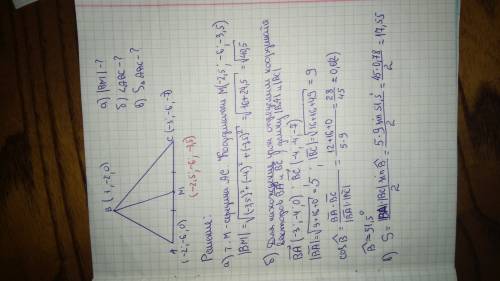 B (1, -2, 0)
а) |BM| - ?
б) ∠ABC - ?
в) S△ABC - ?
A (-2, -6, 0)
M
C (-3, -6, -7)
(-2,5, -6, -3,5)
Решение:
а) т. M - середина AC. Координаты M(-2,5; -6; -3,5)
|BM| = √((-3,5)² + (-4)² + (-3,5)²) = √(16 + 24,5) = √40,5
б) Для нахождения угла определим координаты
векторов BA и BC, длину |BA| и |BC|
BA (-3; -4; 0) BC (-4, -4, -7)
|BA| = √(9+16+0) = 5; |BC| = √(16+16+49) = 9
cos B = BA·BC / |BA|·|BC| = 12+16+0 / 5·9 = 28 / 45 = 0,62)
B ≈ 51,5°
в) S = |BA|·|BC| sin B / 2 = 5·9 sin 51,5° / 2 = 45·0,78 / 2 = 17,55